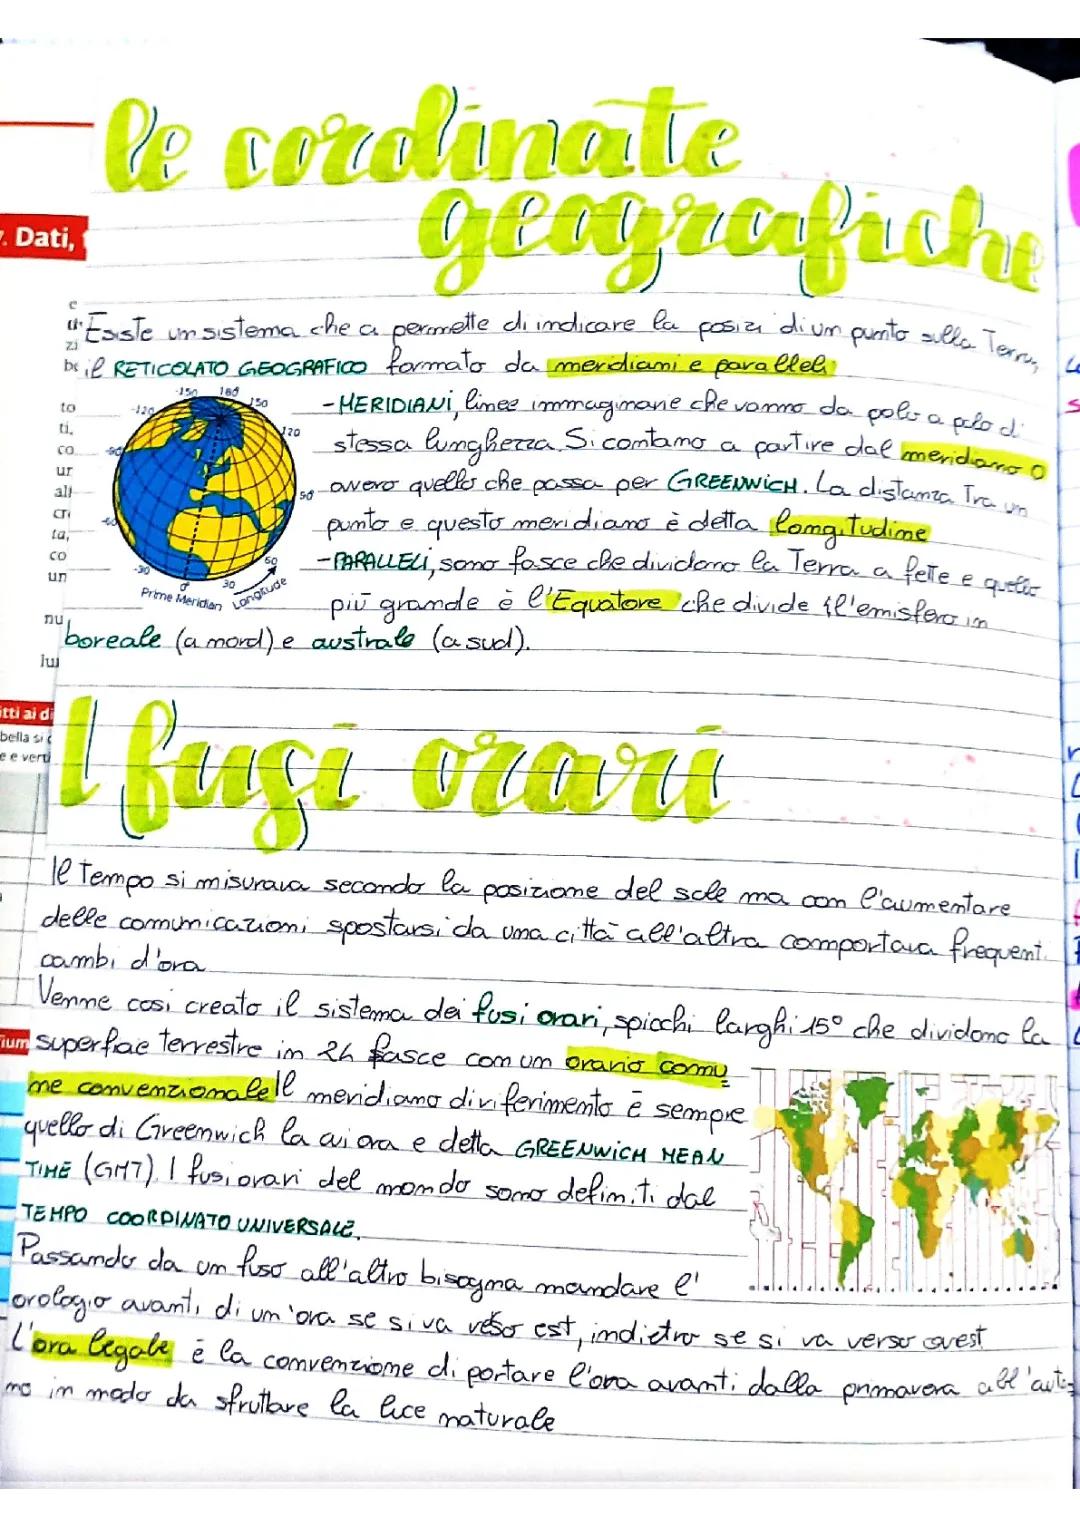 le cordinate
geografiche
. Dati,
Esiste un sistema che ci permette di indicare la posizi di un punto sulla Terra,
il RETICOLATO GEOGRAFICO formato da meridiani e paralleli
-150 180 150
-120 120
-90 90
-60
-30 0° 30 60
Prime Meridian Longitude
-MERIDIANI, linee immaginarie che vanno da polo a polo di
stessa lunghezza. Si contano a partire dal meridiano 0
ovvero quello che passa per GREENWICH. La distanza Tra un
punto e questo meridiano è detta longitudine
-PARALLELI, sono fasce che dividono la Terra a fette e quello
più grande è l'Equatore che divide l'emisfero in
boreale (a nord) e australe (a sud).
e
zi
to
ti,
co
ur
ali
cr
ta,
co
un
nu
itti ai di
bella si
e e verti
I fusi orari
Il Tempo si misurava secondo la posizione del sole ma con l'aumentare
delle comunicazioni spostarsi da una città all'altra comportava frequenti
cambi d'ora
Venne così creato il sistema dei fusi orari, spicchi larghi 15° che dividono la
superficie terrestre in 24 fasce con un orario comu
ne convenzionale Il meridiano di riferimento è sempre
quello di Greenwich la cui ora e detta GREENWICH MEAN
TIME (GMT). I fusi orari del mondo sono definiti dal
TEMPO COORDINATO UNIVERSALE.
Passando da un fuso all'altro bisogna mandare l'
orologio avanti di un'ora se si va veso est, indietro se si va verso ovest
L'ora legale è la convenzione di portare l'ora avanti dalla primavera all'autu
no in modo da sfruttare la luce naturale